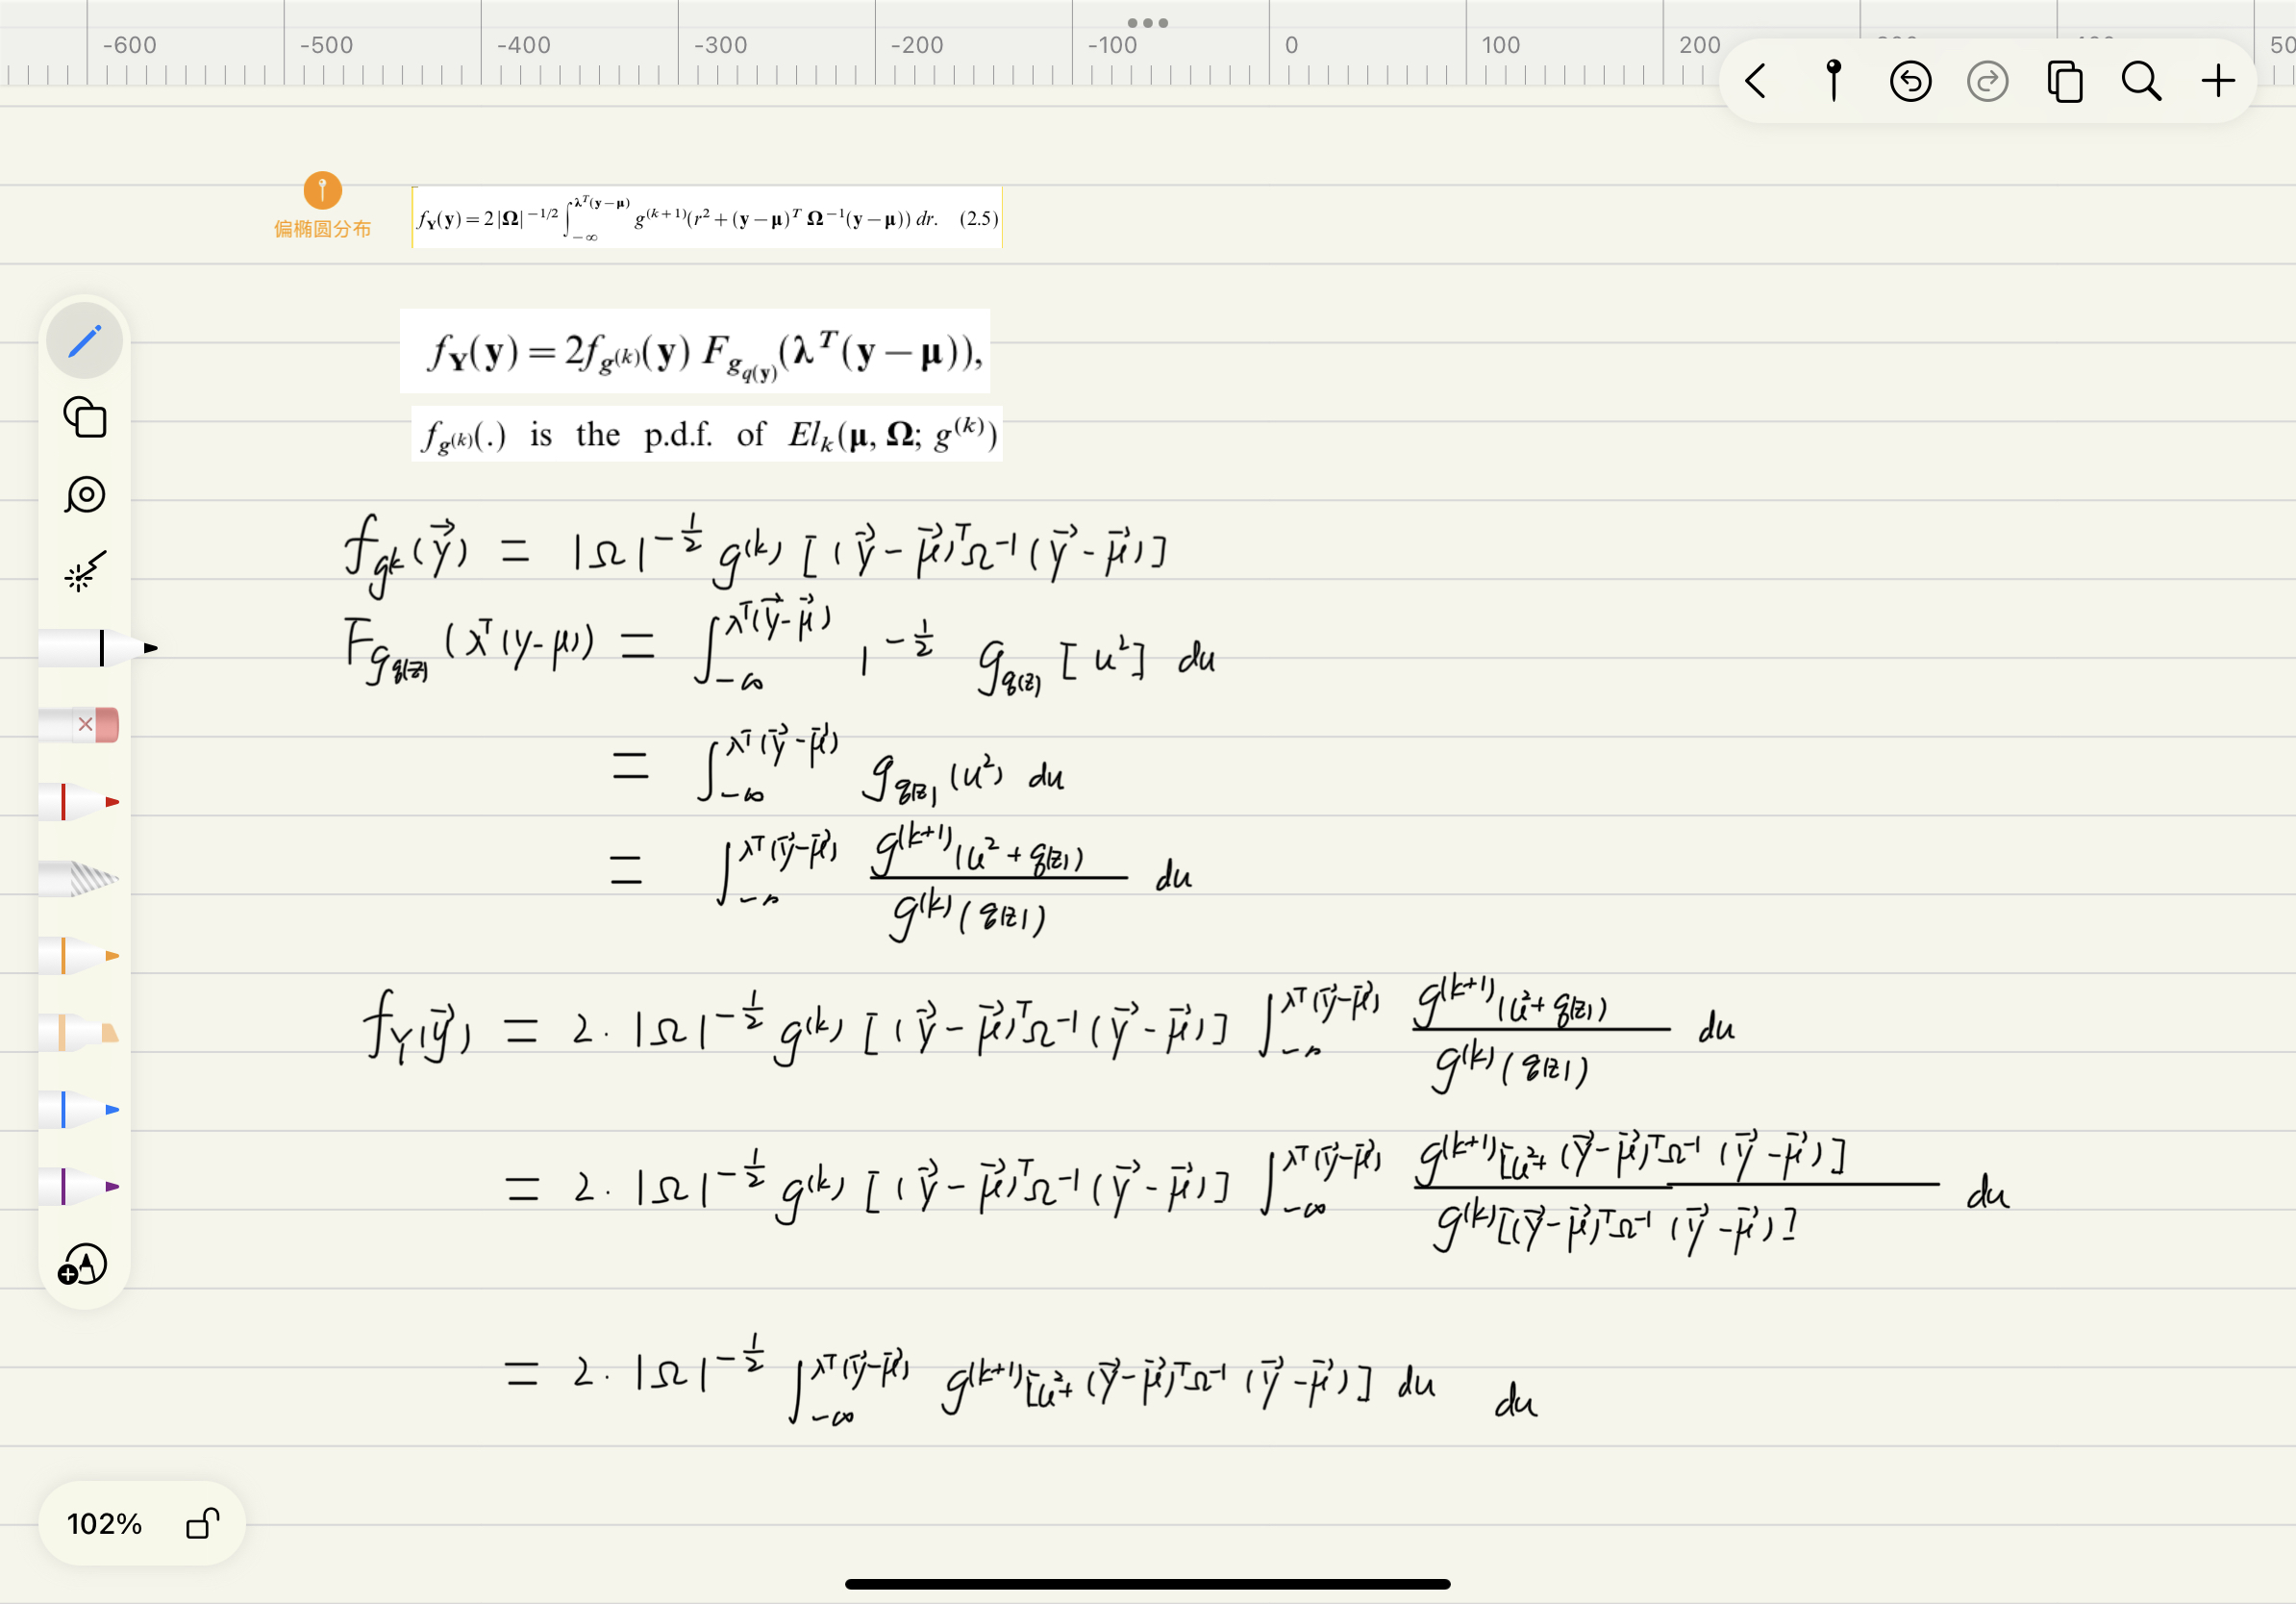 -600 -500 -400 -300 -200 -100 0 100 200
偏椭圆分布
f_Y(y) = 2 |Ω|^{-1/2} ∫_{-∞}^{λ^T(y-μ)} g^{(k+1)}(r² + (y-μ)^T Ω^{-1}(y-μ)) dr. (2.5)
f_Y(y) = 2f_{g^{(k)}}(y) F_{g_{q(y)}}(λ^T(y-μ)),
f_{g^{(k)}}(.) is the p.d.f. of El_k(μ, Ω; g^{(k)})
f_{gk}(y⃗) = |Ω|^{-1/2} g^{(k)} [(y⃗-μ⃗)^T Ω^{-1} (y⃗-μ⃗)]
F_{g_{q(z)}}(λ^T(y-μ)) = ∫_{-∞}^{λ^T(y⃗-μ⃗)} 1^{-1/2} g_{q(z)} [u²] du
= ∫_{-∞}^{λ^T(y⃗-μ⃗)} g_{q(z)}(u²) du
= ∫_{-∞}^{λ^T(y⃗-μ⃗)} g^{(k+1)}(u²+q(z)) / g^{(k)}(q(z)) du
f_Y(y⃗) = 2·|Ω|^{-1/2} g^{(k)} [(y⃗-μ⃗)^T Ω^{-1} (y⃗-μ⃗)] ∫_{-∞}^{λ^T(y⃗-μ⃗)} g^{(k+1)}(u²+q(z)) / g^{(k)}(q(z)) du
= 2·|Ω|^{-1/2} g^{(k)} [(y⃗-μ⃗)^T Ω^{-1} (y⃗-μ⃗)] ∫_{-∞}^{λ^T(y⃗-μ⃗)} g^{(k+1)}[u²+(y⃗-μ⃗)^T Ω^{-1} (y⃗-μ⃗)] / g^{(k)}[(y⃗-μ⃗)^T Ω^{-1} (y⃗-μ⃗)] du
= 2·|Ω|^{-1/2} ∫_{-∞}^{λ^T(y⃗-μ⃗)} g^{(k+1)}[u²+(y⃗-μ⃗)^T Ω^{-1} (y⃗-μ⃗)] du du
102%